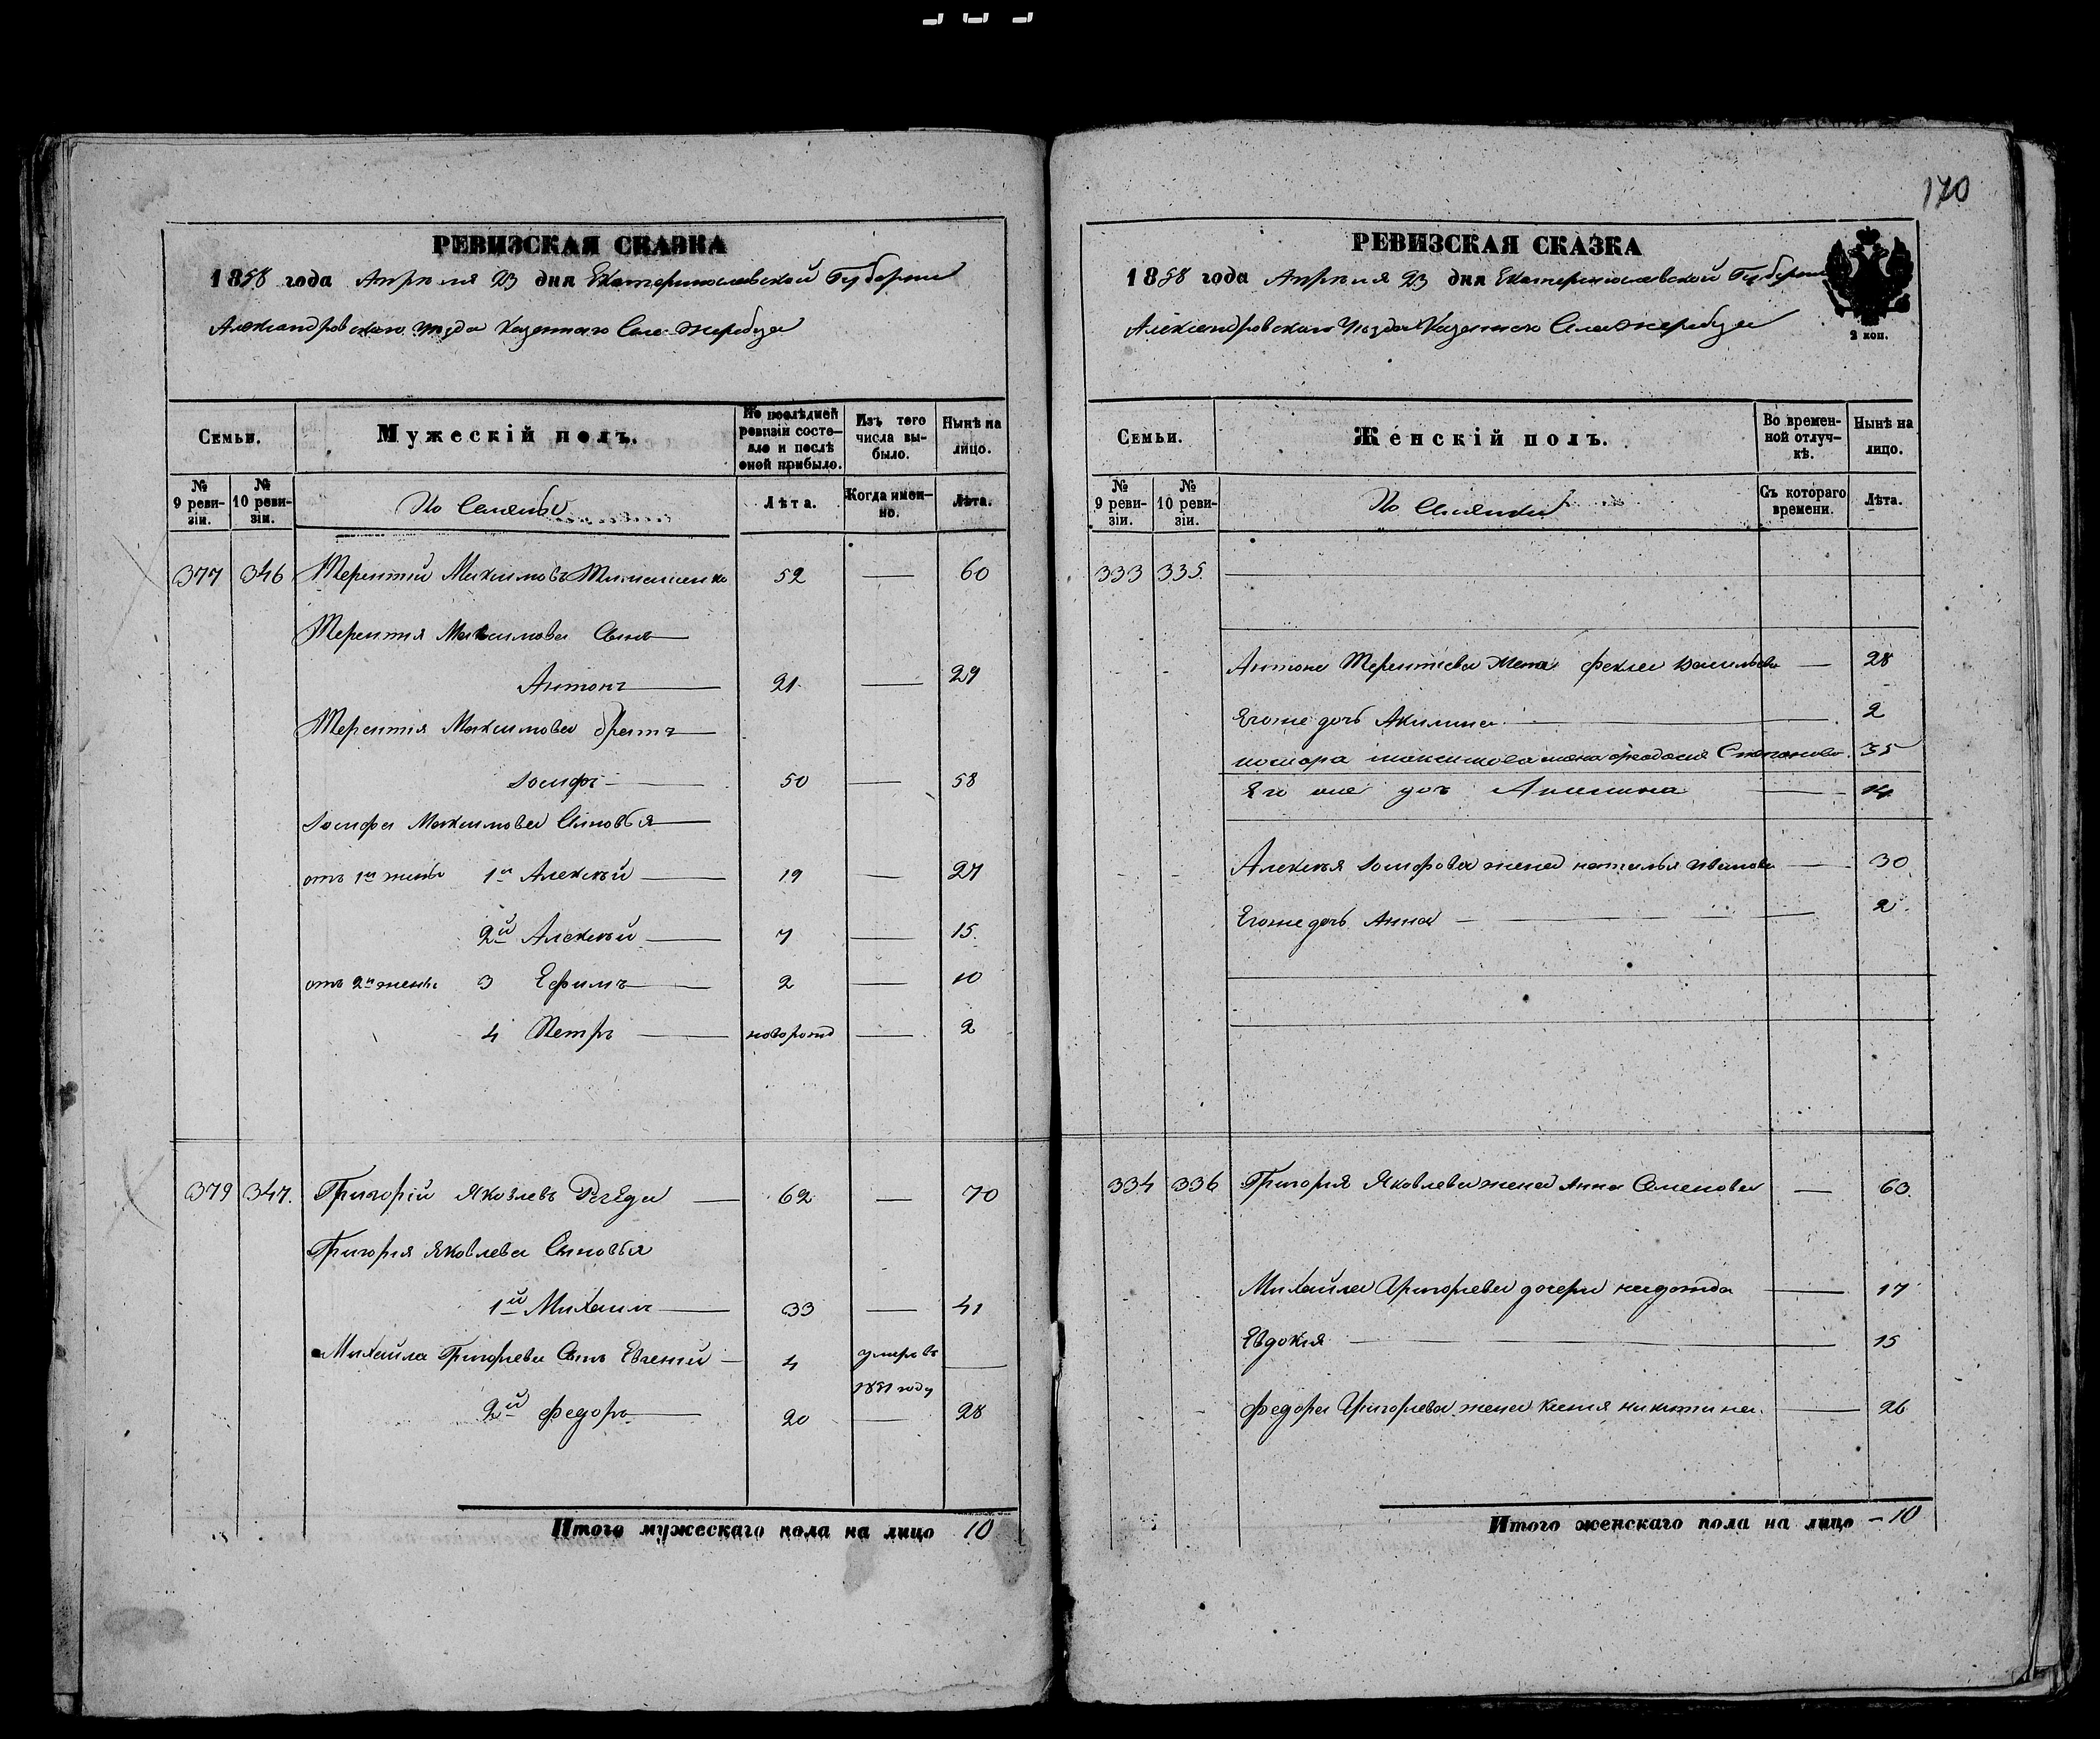 170
РЕВИЗСКАЯ СКАЗКА
1858 года Апрѣля 23 дня Екатеринославской Губернии
Александровскаго уѣзда Казеннаго Села Жеребца
Семьи.
Мужескій полъ.
По послѣдней ревизіи состояло и послѣ оной прибыло.
Изъ того числа выбыло.
Нынѣ на лицо.
№ 9 ревизіи.
№ 10 ревизіи.
Лѣта.
Когда именно.
Лѣта.
377 346 Терентій Максимовъ 52 — 60
Терентія Максимова Сынъ
Антонъ 21 — 29
Терентія Максимова братъ
Іосифъ 50 — 58
Іосифа Максимова Сыновья
отъ 1й жены 1й Алексѣй 19 — 27
2й Алексѣй 7 — 15.
отъ 2й жены 3 Ефимъ 2 — 10
4 Петръ новорожд — 2
379 347. Григорій Яковлевъ 62 — 70
Григорія Яковлева Сыновья
1й Михаилъ 33 — 41
Михайла Григорьева Сынъ Евгений 4 умеръ въ 1851 году —
2й Федоръ 20 — 28
Итого мужескаго пола на лицо 10
РЕВИЗСКАЯ СКАЗКА
1858 года Апрѣля 23 дня Екатеринославской Губернии
Александровскаго Уѣзда Казеннаго Села Жеребца
2 коп.
Семьи.
Женскій полъ.
Во временной отлучкѣ.
Нынѣ на лицо.
№ 9 ревизіи.
№ 10 ревизіи.
Съ котораго времени.
Лѣта.
333 335.
Антона Терентіева жена Фекла Васильева — 28
Егоже дочь Акилина 2
Максимова жена Феодосия Степанова 35
Его же доч 14
Алексѣя Іосифова жена наталья Иванова — 30
Егоже дочь Анна — 2
334 336 Григорія Яковлева жена Анна Семенова — 63.
Михайла Григорьева дочери надежда — 17
Евдокія — 15
Федора Григорьева жена Ксенія никитина — 26
Итого женскаго пола на лицо — 10